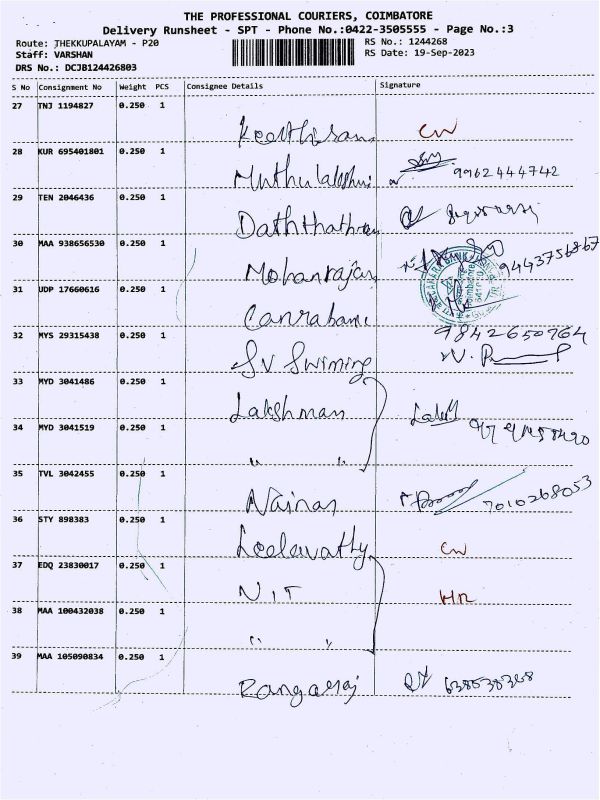 THE PROFESSIONAL COURIERS, COIMBATORE
Delivery Runsheet - SPT - Phone No.:0422-3505555 - Page No.:3
Route: THEKKUPALAYAM - P20
RS No.: 1244268
Staff: VARSHAN
RS Date: 19-Sep-2023
DRS No.: DCJB124426803
S No Consignment No Weight PCS Consignee Details Signature
27 TNJ 1194827 0.250 1
Keerthisan CW
28 KUR 695401801 0.250 1
Muthulakshmi 9962444742
29 TEN 2046436 0.250 1
Daththathran
30 MAA 938656530 0.250 1
Mohanrajan 9443756867
31 UDP 17660616 0.250 1
Canrabank
32 MYS 29315438 0.250 1 9842650764
SV Swiming
33 MYD 3041486 0.250 1
Lakshman
34 MYD 3041519 0.250 1
" "
35 TVL 3042455 0.250 1
Nainar 7010268053
36 STY 898383 0.250 1
Leelavathy CW
37 EDQ 23830017 0.250 1
NIT HR
38 MAA 100432038 0.250 1
" "
39 MAA 105090834 0.250 1
Rangaraj